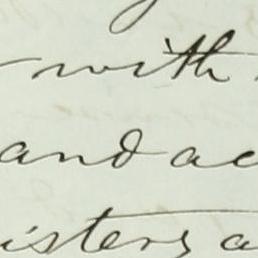 with
and ac
isters a